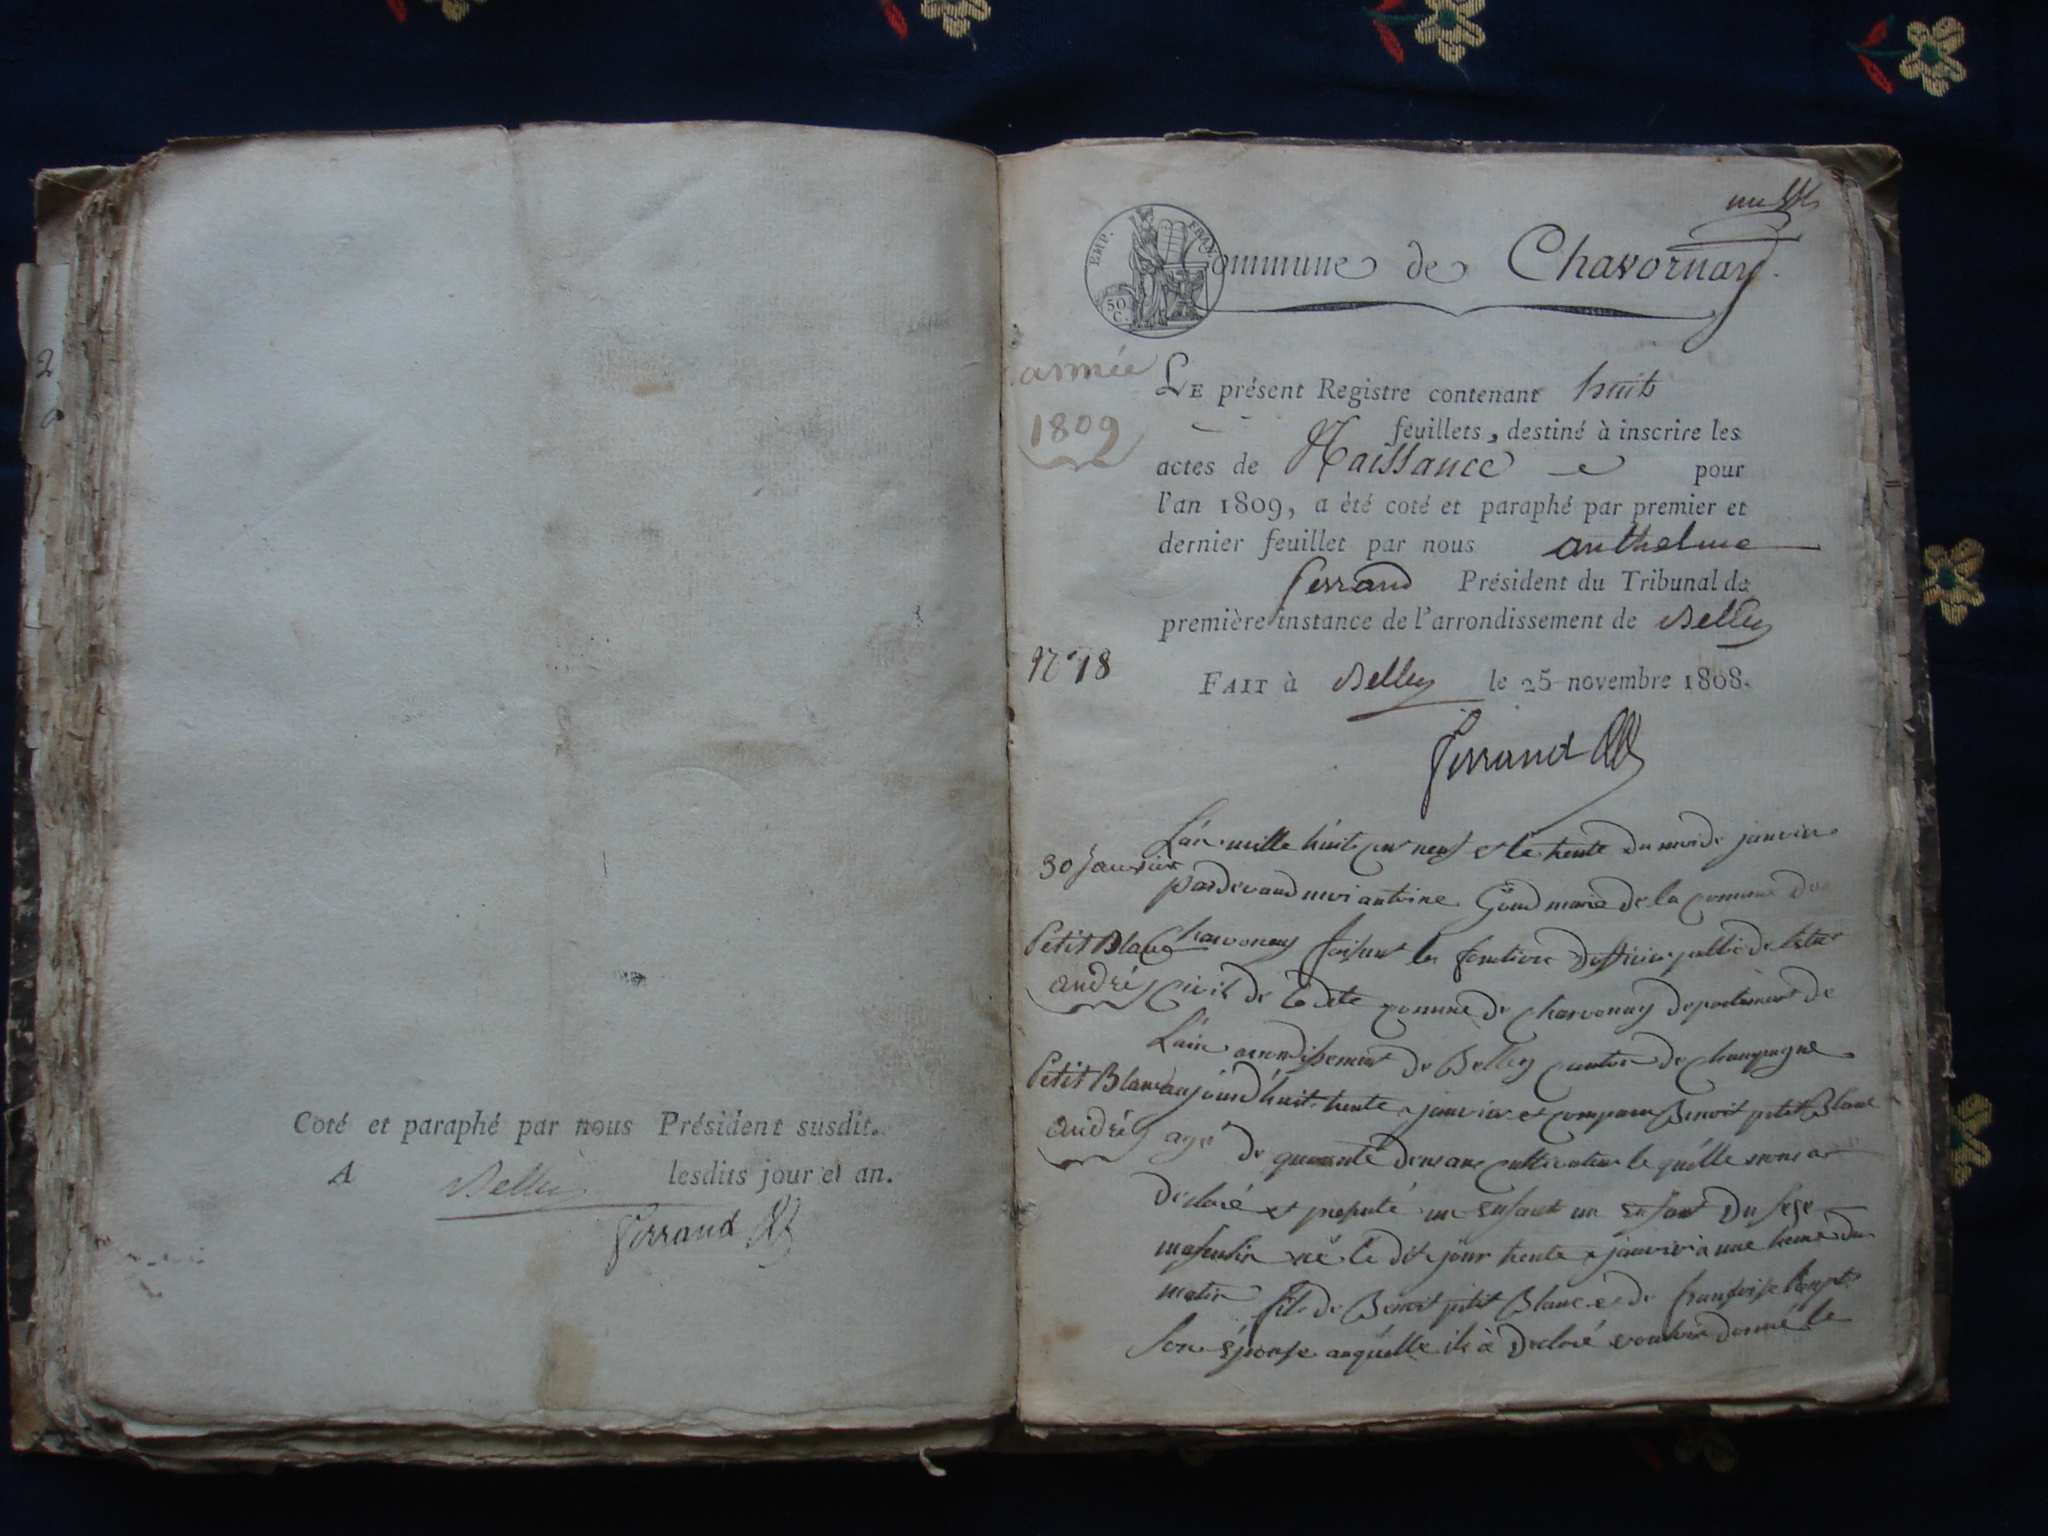 2
Coté et paraphé par nous Président susdit.
A Belley lesdits jour et an.
Ferrand
EMP. FRAN.
50 C.
Commune de Chavornay.
année
1809
LE présent Registre contenant huit
feuillets, destiné à inscrire les
actes de Naissance pour
l'an 1809, a été coté et paraphé par premier et
dernier feuillet par nous anthelme
ferrand Président du Tribunal de
première instance de l'arrondissement de Belley
N° 18
FAIT à Belley le 25 novembre 1808.
Ferrand
L'an mille huit cent neuf et le trente du mois de janvier
30 Janvier
pardevand moi antoine maire de la comune de
Petit Blanc
andré
Chavornay faisant les fonctions dofficier public de letat
civil de la dite comune de Chavornay departement de
L'ain arrondisement de Belley canton de Champagne
Petit Blanc
andré
aujourd'huit trente janvier et comparu Benoit petit Blanc
agé de quarante deux ans cultivateur le quelle nous a
declaré et presenté un enfant un enfant du sexe
masculin né le dit jour trente janvier à une heure du
matin fils de Benoit petit Blanc et de françoise
son épouse auquelle il à declaré vouloir donné le